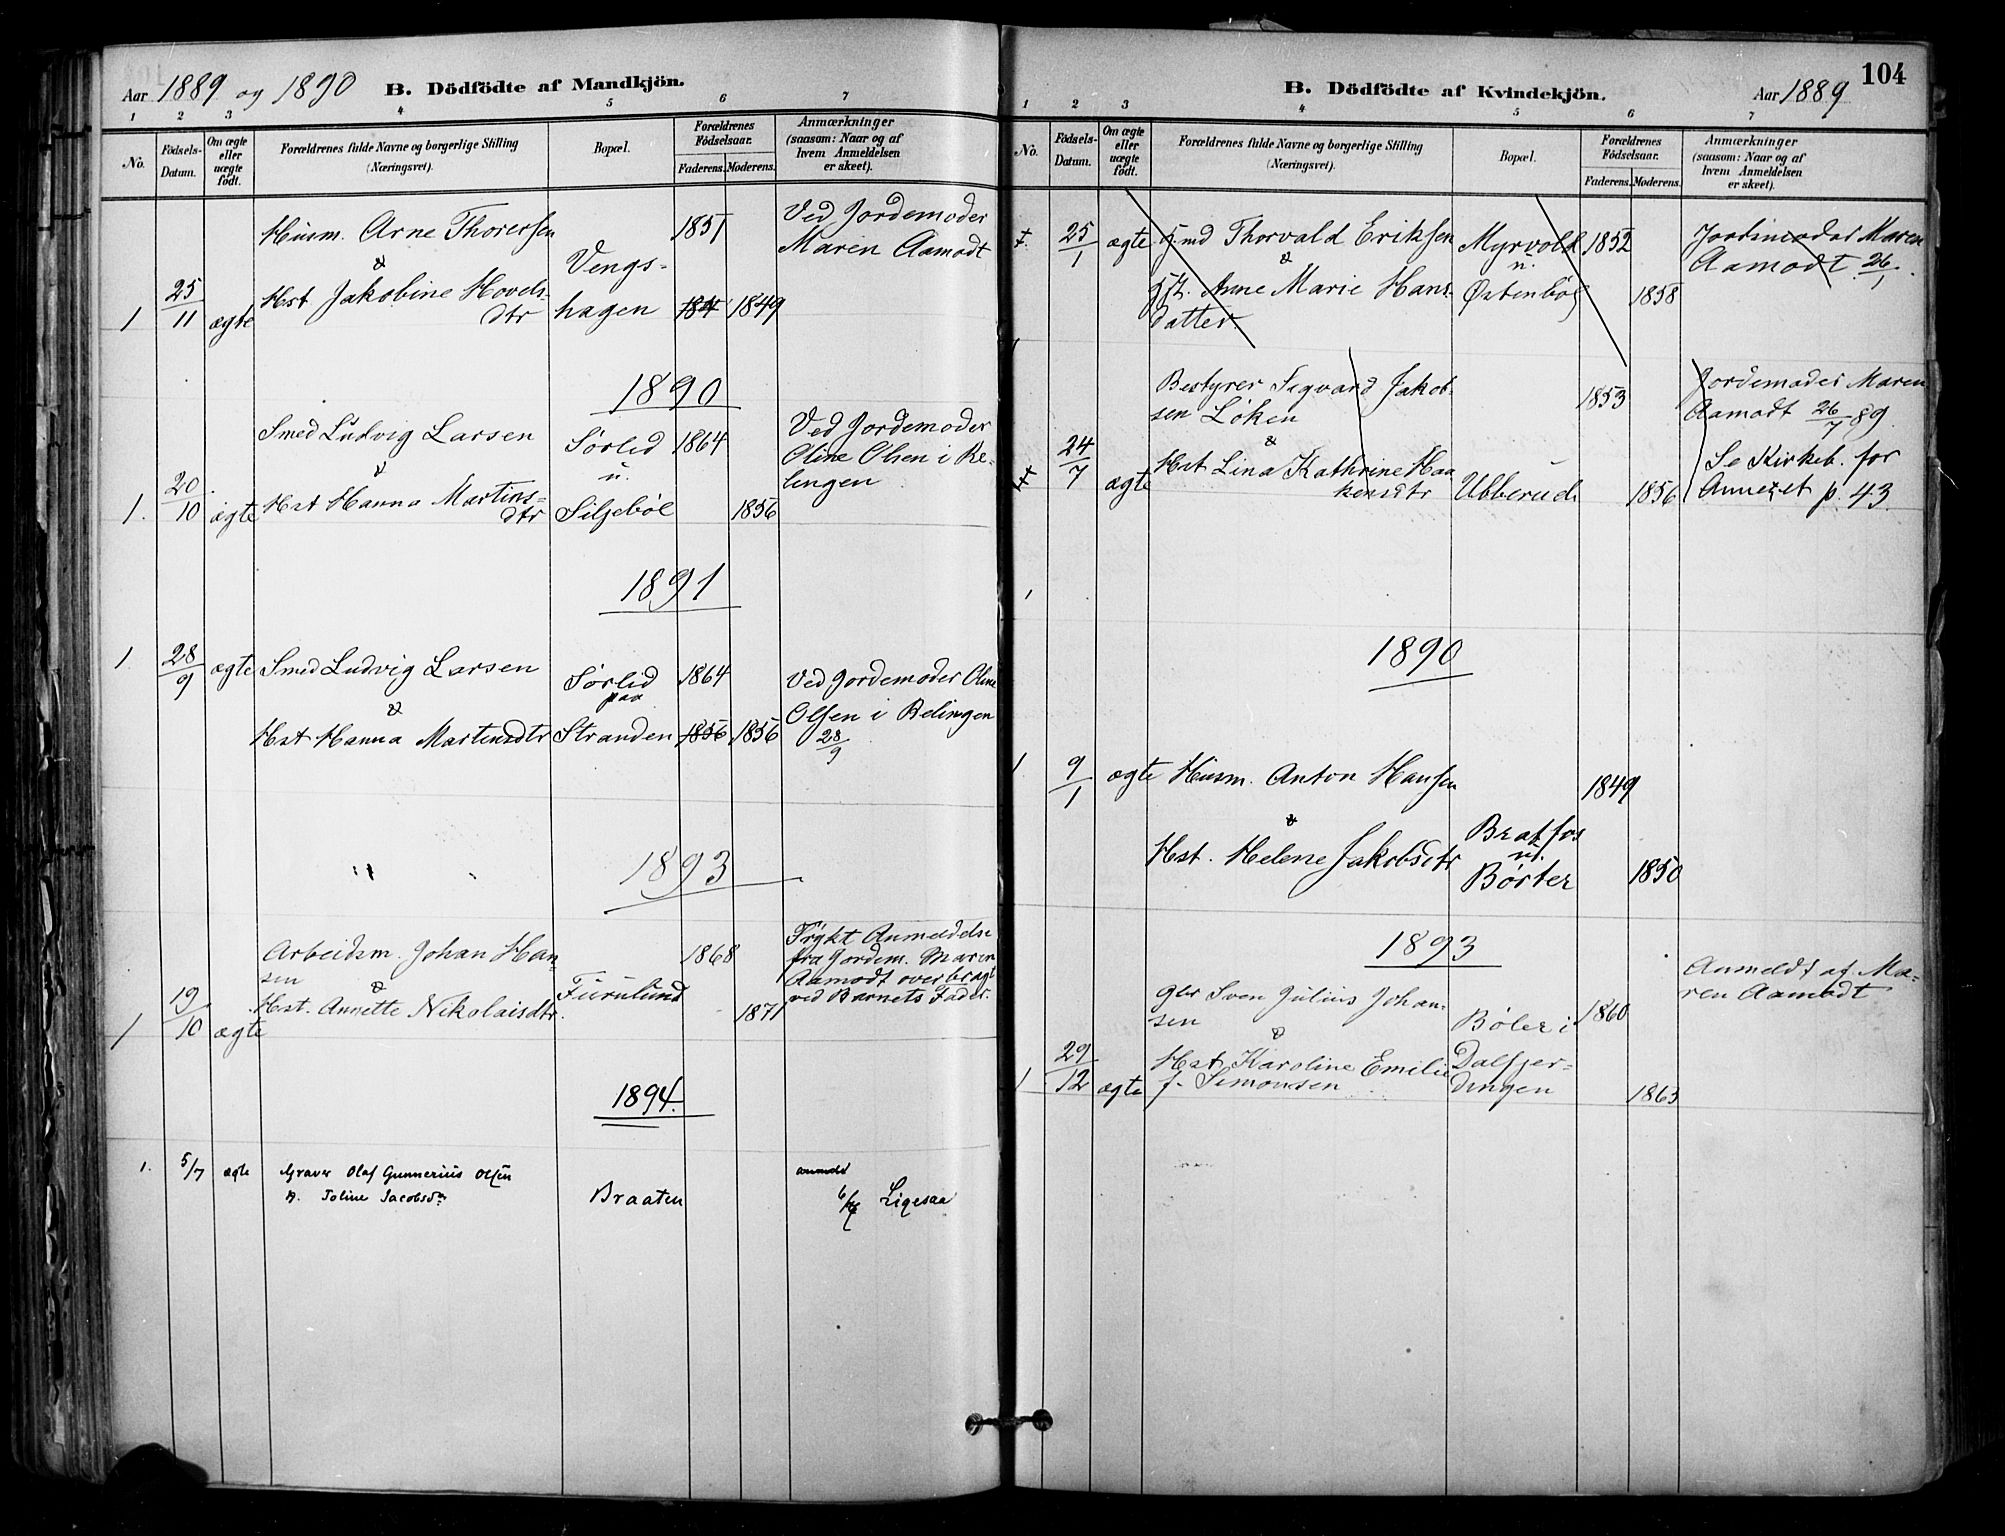 Aar 1889 og 1890 B. Dödfödte af Mandkjön.
1 2 3 4 5 6 7
No. Födsels-Datum. Om ægte eller uægte födt. Forældrenes fulde Navne og borgerlige Stilling (Næringsvei). Bopæl. Forældrenes Födselsaar. Faderens. Moderens. Anmærkninger (saasom: Naar og af hvem Anmeldelsen er skeet).
Husm. Arne Thorersen 1851 Ved Jordemoder
& Vengs- Maren Aamodt
1 25/11 ægte Hst Jakobine Hovels- hagen 1849
dtr
1890
Smed Ludvig Larsen Sørlid 1864 Ved Jordemoder
& u. Oline Olsen i Re-
1. 20/10 ægte Hst Hanna Martins- Siljebøl 1856 lingen
dtr
1891
1 28/9 ægte Smed Ludvig Larsen Sørlid 1864 Ved Jordemoder Oline
& paa Olsen i Relingen
Hst Hanna Martinsdtr Stranden 1856 1856 28/9
1893
Arbeidsm. Johan Han- 1868 Anmeldelse
sen fra Jordem. Maren
& Furulund Aamodt overbragt
1 19/10 ægte Hst. Annette Nikolaisdtr. 1871 ved Barnets Fader.
1894.
1. 5/7 ægte Graver Olaf Gunnerius Olsen anmeldt
H. Toline Jacobsdr Braaten Ligesaa
B. Dödfödte af Kvindekjön. Aar 1889 104
1 2 3 4 5 6 7
No. Födsels-Datum. Om ægte eller uægte födt. Forældrenes fulde Navne og borgerlige Stilling (Næringsvei). Bopæl. Forældrenes Födselsaar. Faderens. Moderens. Anmærkninger (saasom: Naar og af hvem Anmeldelsen er skeet).
25/1 ægte Hmd Thorvald Eriksen Myrvold 1852 Jordemoder Maren
& u. Aamodt 26/1.
Anne Marie Hans- Østenbøl 1858
datter.
Bestyrer Sigvard Jakob- 1853 Jordemoder Maren
sen Løken Aamodt 26/7 89.
& Se Kirkeb. for
24/7 ægte Hst Lina Kathrine Haa- Ubberud 1856 Annexet p. 43.
kensdtr
1890
1 9/1 ægte Husm. Anton Hansen 1849
& Bratfos
u.
Hst. Helene Jakobsdtr Børter 1850
1893
Anmeldt af Ma-
Gbr Sven Julius Johan- ren Aamodt
sen Bøler i 1860
&
1 29/12 ægte Hst Karoline Emilie Dalfjer-
f. Simonsen dingen 1863